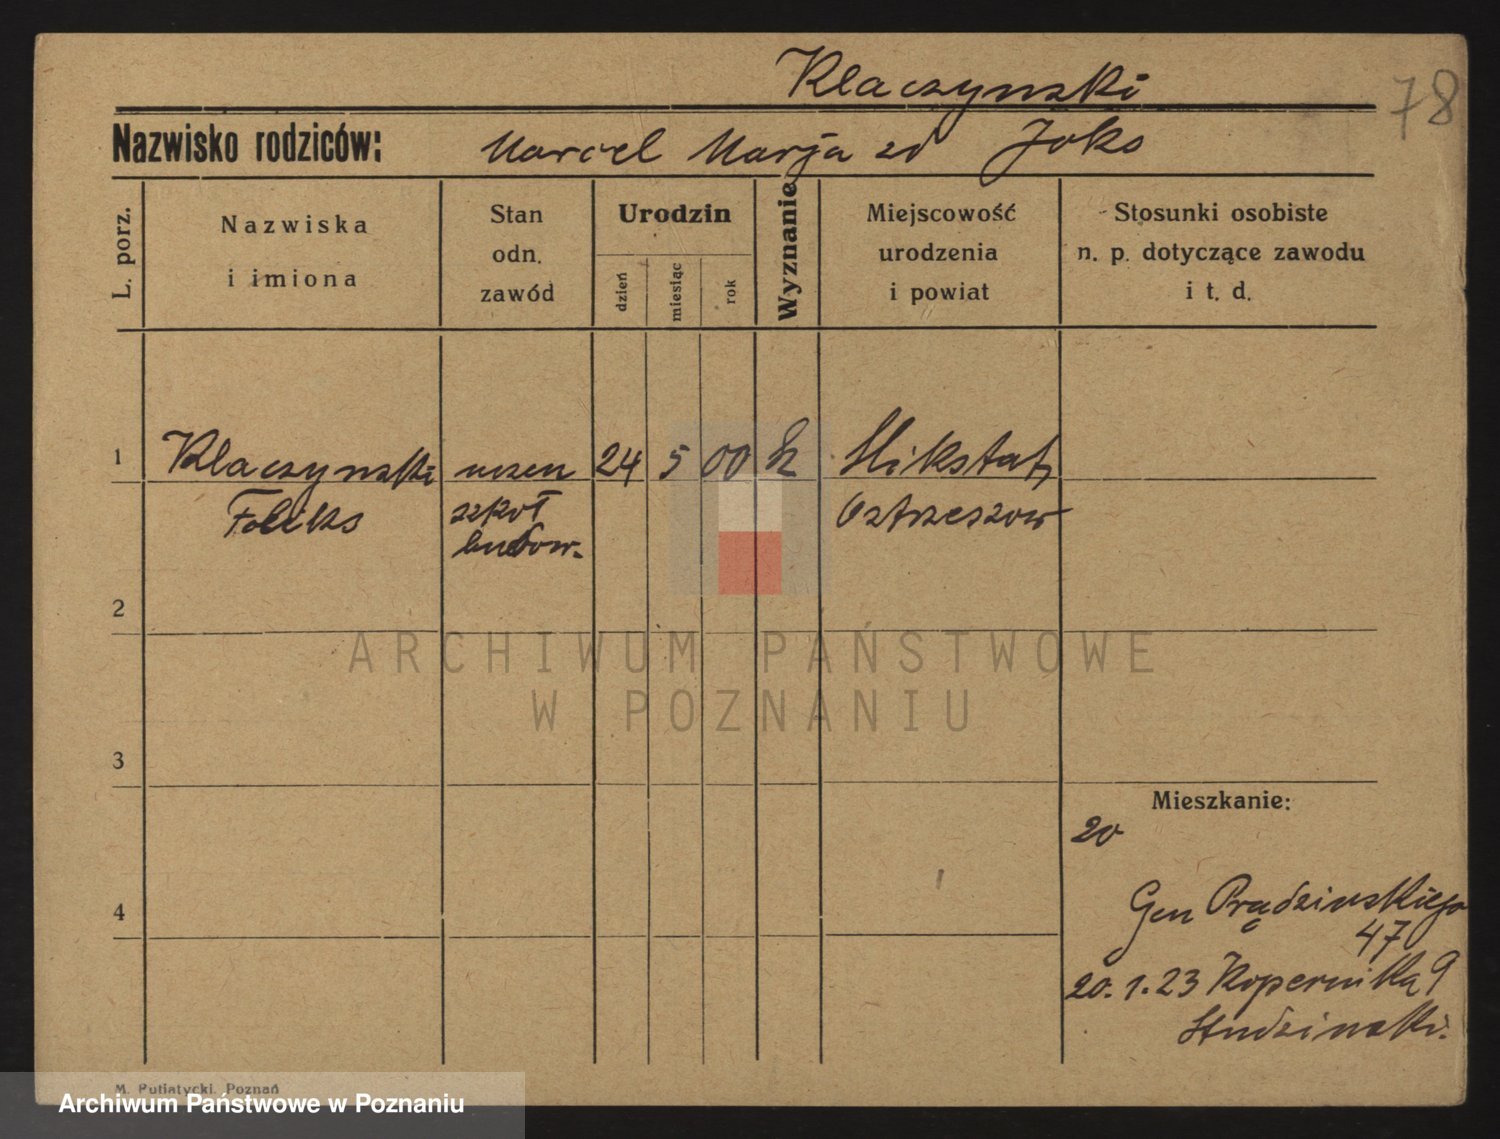 Klaczynski
78
Nazwisko rodziców: Marcel Marja zd Joks
L. porz.
Nazwiska i imiona
Stan odn. zawód
Urodzin
dzień
miesiąc
rok
Wyznanie
Miejscowość urodzenia i powiat
Stosunki osobiste n. p. dotyczące zawodu i t. d.
1 Klaczynski uczen 24 5 00 k Mikstat,
Feliks szkoł Ostrzeszow
budow.
2
ARCHIWUM PAŃSTWOWE
W POZNANIU
3
Mieszkanie:
20
4
Gen Prądzinskiego
47
20.1.23 Kopernika 9
Studzinski.
M. Putiatycki, Poznań
Archiwum Państwowe w Poznaniu